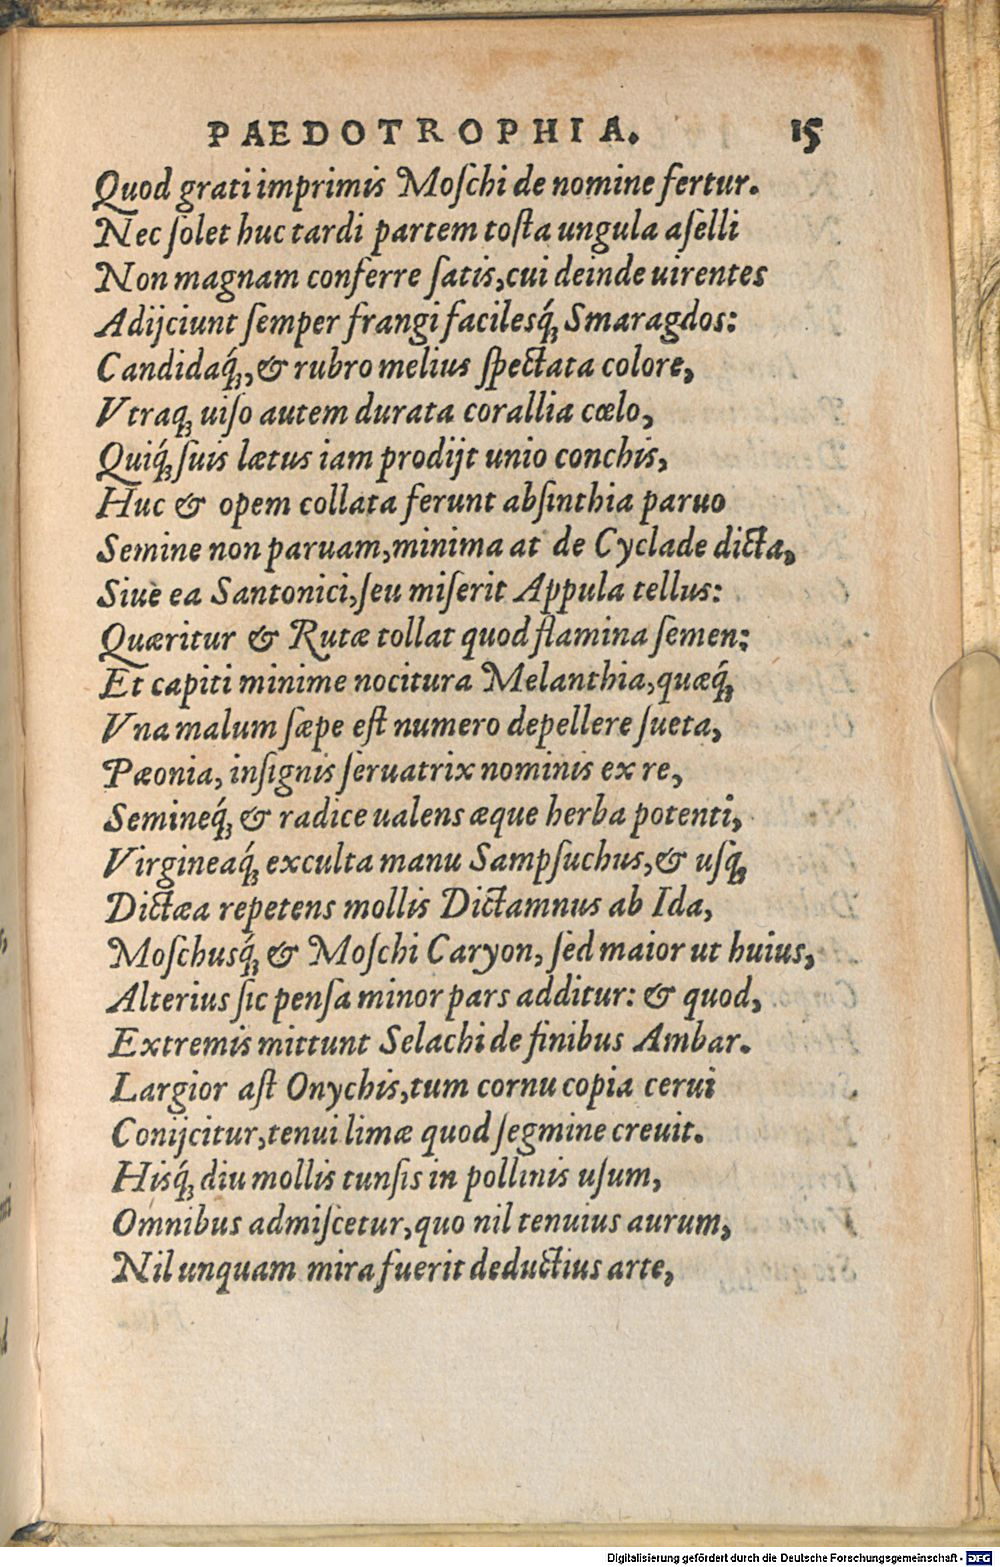 PAEDOTROPHIA. 15
Quod grati imprimis Moſchi de nomine fertur.
Nec ſolet huc tardi partem toſta ungula aſelli
Non magnam conferre ſatis, cui deinde uirentes
Adijciunt ſemper frangi facilesq́; Smaragdos:
Candidaq́;, & rubro melius ſpectata colore,
Vtraq; uiſo autem durata corallia cœlo,
Quiq́; ſuis lætus iam prodijt unio conchis,
Huc & opem collata ferunt abſinthia paruo
Semine non paruam, minima at de Cyclade dicta,
Siue ea Santonici, ſeu miſerit Appula tellus:
Quæritur & Rutæ tollat quod flamina ſemen:
Et capiti minime nocitura Melanthia, quæq́;
Vna malum ſæpe eſt numero depellere ſueta,
Pæonia, inſignis ſeruatrix nominis ex re,
Semineq́; & radice ualens æque herba potenti,
Virgineaq́; exculta manu Sampſuchus, & uſq;
Dictæa repetens mollis Dictamnus ab Ida,
Moſchusq́; & Moſchi Caryon, ſed maior ut huius,
Alterius ſic penſa minor pars additur: & quod,
Extremis mittunt Selachi de finibus Ambar.
Largior aſt Onychis, tum cornu copia cerui
Conijcitur, tenui limæ quod ſegmine creuit.
Hisq́; diu mollis tunſis in pollinis uſum,
Omnibus admiſcetur, quo nil tenuius aurum,
Nil unquam mira fuerit deductius arte,
Digitalisierung gefördert durch die Deutsche Forschungsgemeinschaft - DFG